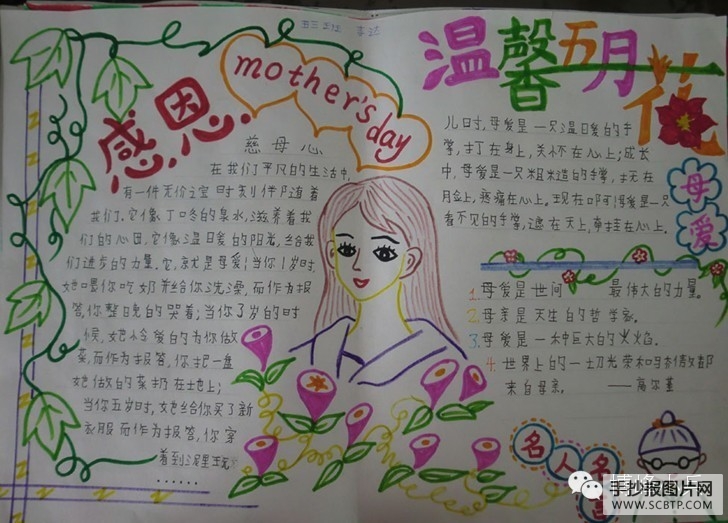 感恩
mother's
day
慈母心
在我们平凡的生活中,
有一件无价之宝时刻伴随着
我们.它像丁冬的泉水,滋养着我
们的心田,它像温暖的阳光,给我
们进步的力量.它,就是母爱!当你1岁时,
她喂你吃奶并给你洗澡,而作为报
答,你整晚的哭着;当你3岁的时
候,她怜爱的为你做
菜,而作为报答,你把一盘
她做的菜扔在地上;
当你五岁时,她给你买了新
衣服而作为报答,你穿
着到泥里玩
......
温馨五月花
儿时,母爱是一只温暖的手
掌,打在身上,关怀在心上;成长
中,母爱是一只粗糙的手掌,抚在
脸上,疼痛在心上.现在啊!母爱是一只
看不见的手掌,遮在天上,牵挂在心上.
母爱
1.母爱是世间 最伟大的力量.
2.母亲是天生的哲学家.
3.母爱是一种巨大的火焰.
4.世界上的一切光荣和骄傲都
来自母亲. ——高尔基
名人名言
手抄报图片网
WWW.SCBTP.COM